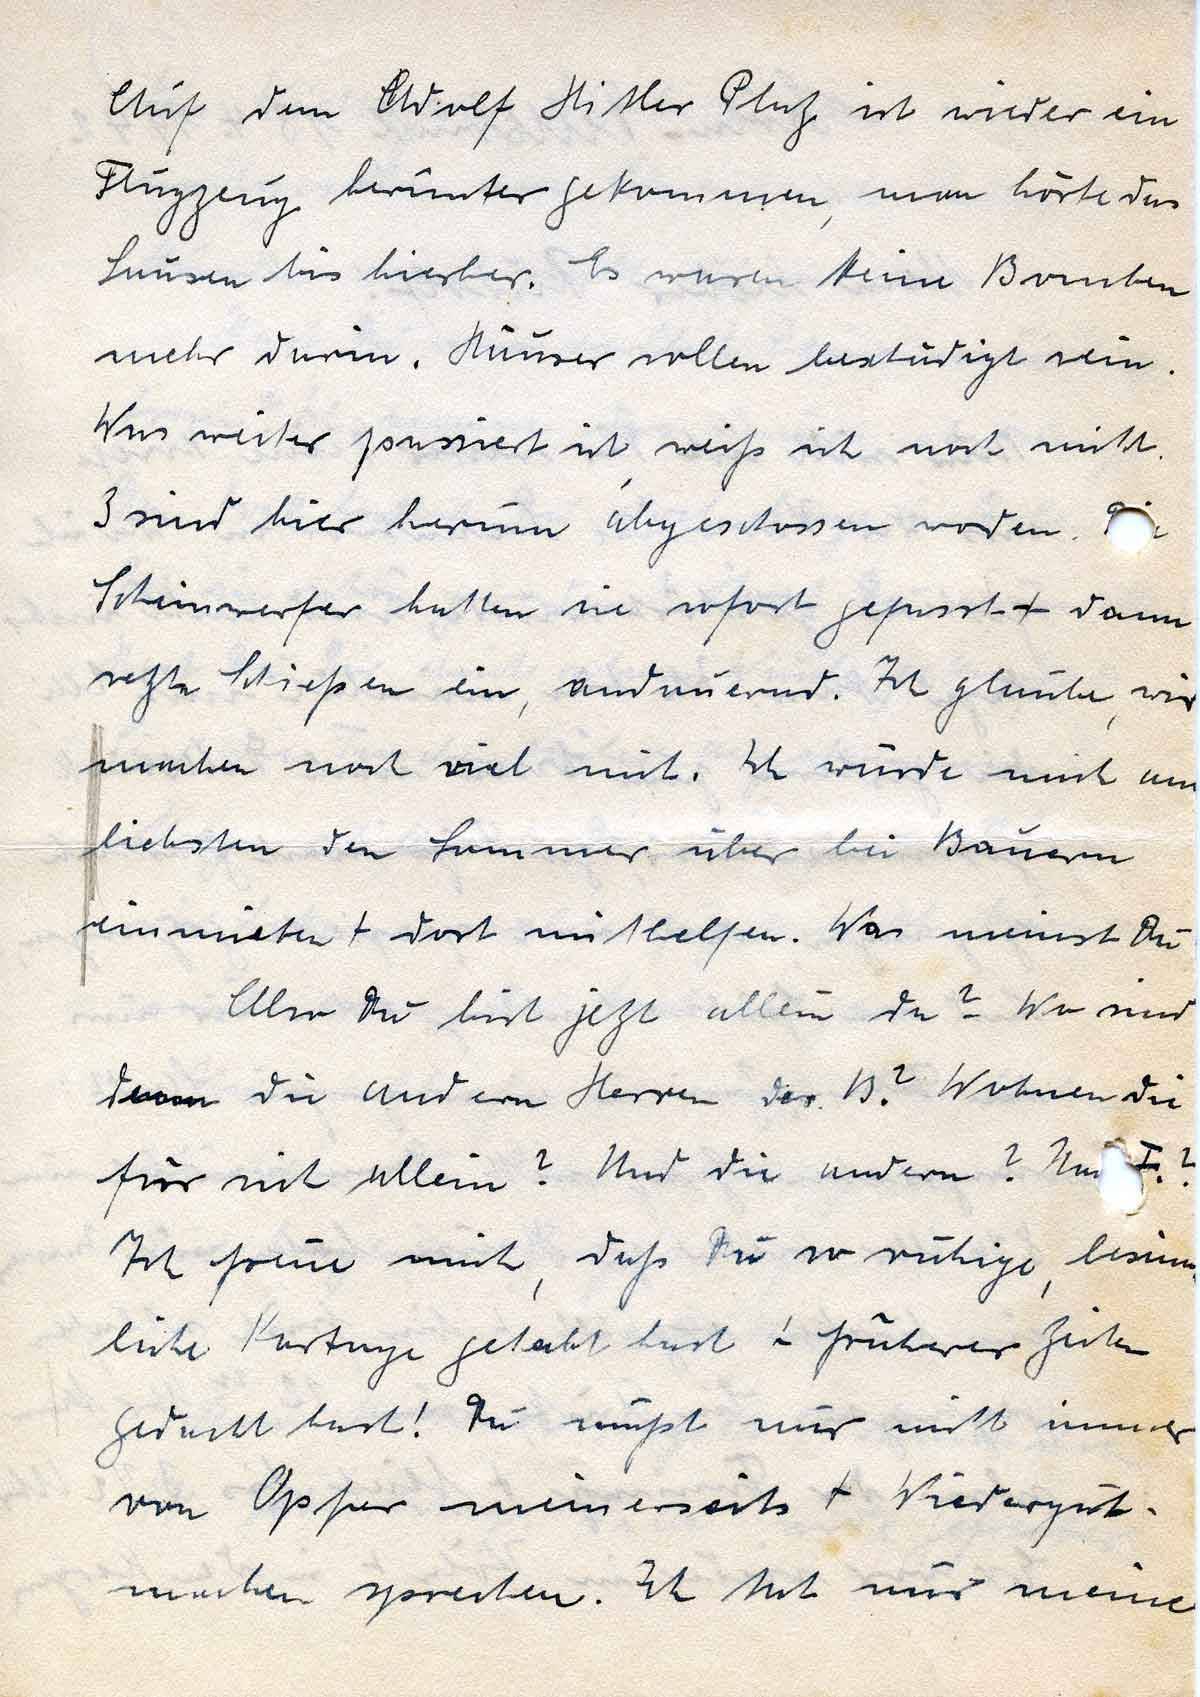 Auf dem Adolf Hitler Platz ist wieder ein
Flugzeug heruntergekommen, man hörte das
Sausen bis hierher. Es waren keine Bomben
mehr darin. Häuser sollen beschädigt sein.
Was weiter passiert ist, weiß ich noch nicht.
3 sind hier herum abgeschossen woden. Die
Scheinwerfer hatten sie sofort gefasst + dann
setzte Schießen ein, andauernd. Ich glaube, wir
machen noch viel mit. Ich würde mich am
liebsten den Sommer über bei Bauern
einmieten + dort mithelfen. Was meinst Du
Also Du bist jetzt allein da? Wo sind
denn die andern Herren der B? Wohnen die
für sich allein? Und die andern? Und F.?
Ich freue mich, daß Du so ruhige, besinn
liche Kartage gehabt hast + früherer Zeiten
gedacht hast! Du mußt nur nicht immer
von Opfer meinerseits + Wiedergut-
machen sprechen. Ich tat nur meine